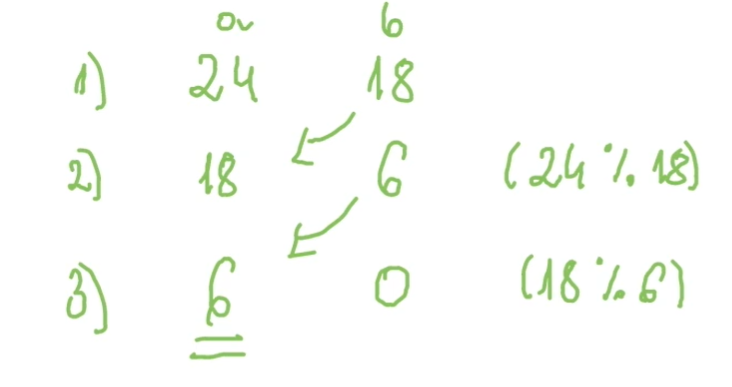 a b
1) 24 18
2) 18 6 (24 % 18)
3) 6 0 (18 % 6)